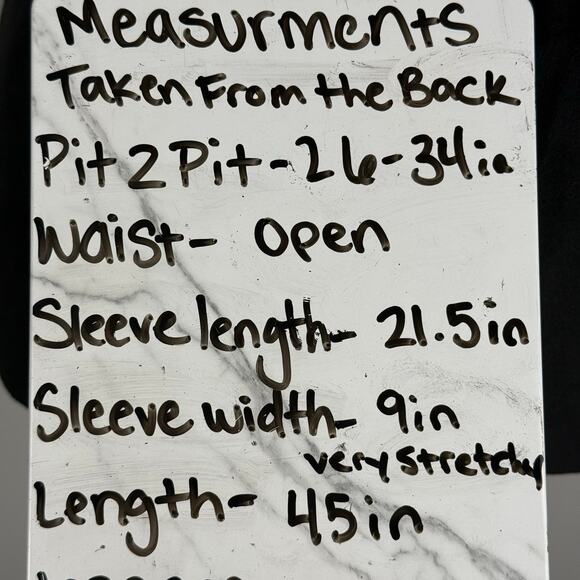 Measurments
Taken From the Back
Pit 2 Pit - 26-34in
Waist - Open
Sleeve length - 21.5in
Sleeve width - 9in
very stretchy
Length - 45in